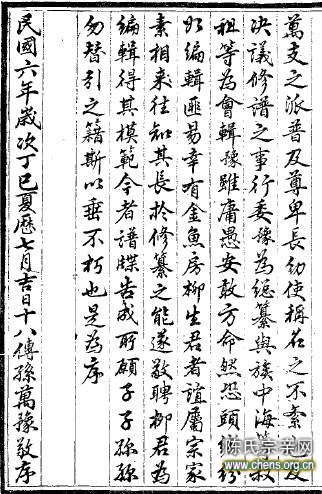 萬支之派普及尊卑長幼使稱名之不紊爰及
決議修譜之事行委豫為總纂與族中海
祖等為會輯豫雖庸愚安敢方命然恐頭
如編輯匪易幸有金魚房柳生君者誼屬宗家
素相來往知其長於修纂之能遂敬聘柳君為
編輯得其模範今者譜牒告成所願子子孫孫
勿替引之籍斯以垂不朽也是為序
民國六年歲次丁巳夏曆七月吉日十八傳孫萬豫敬序
陈氏宗亲网
www.chens.org.cn